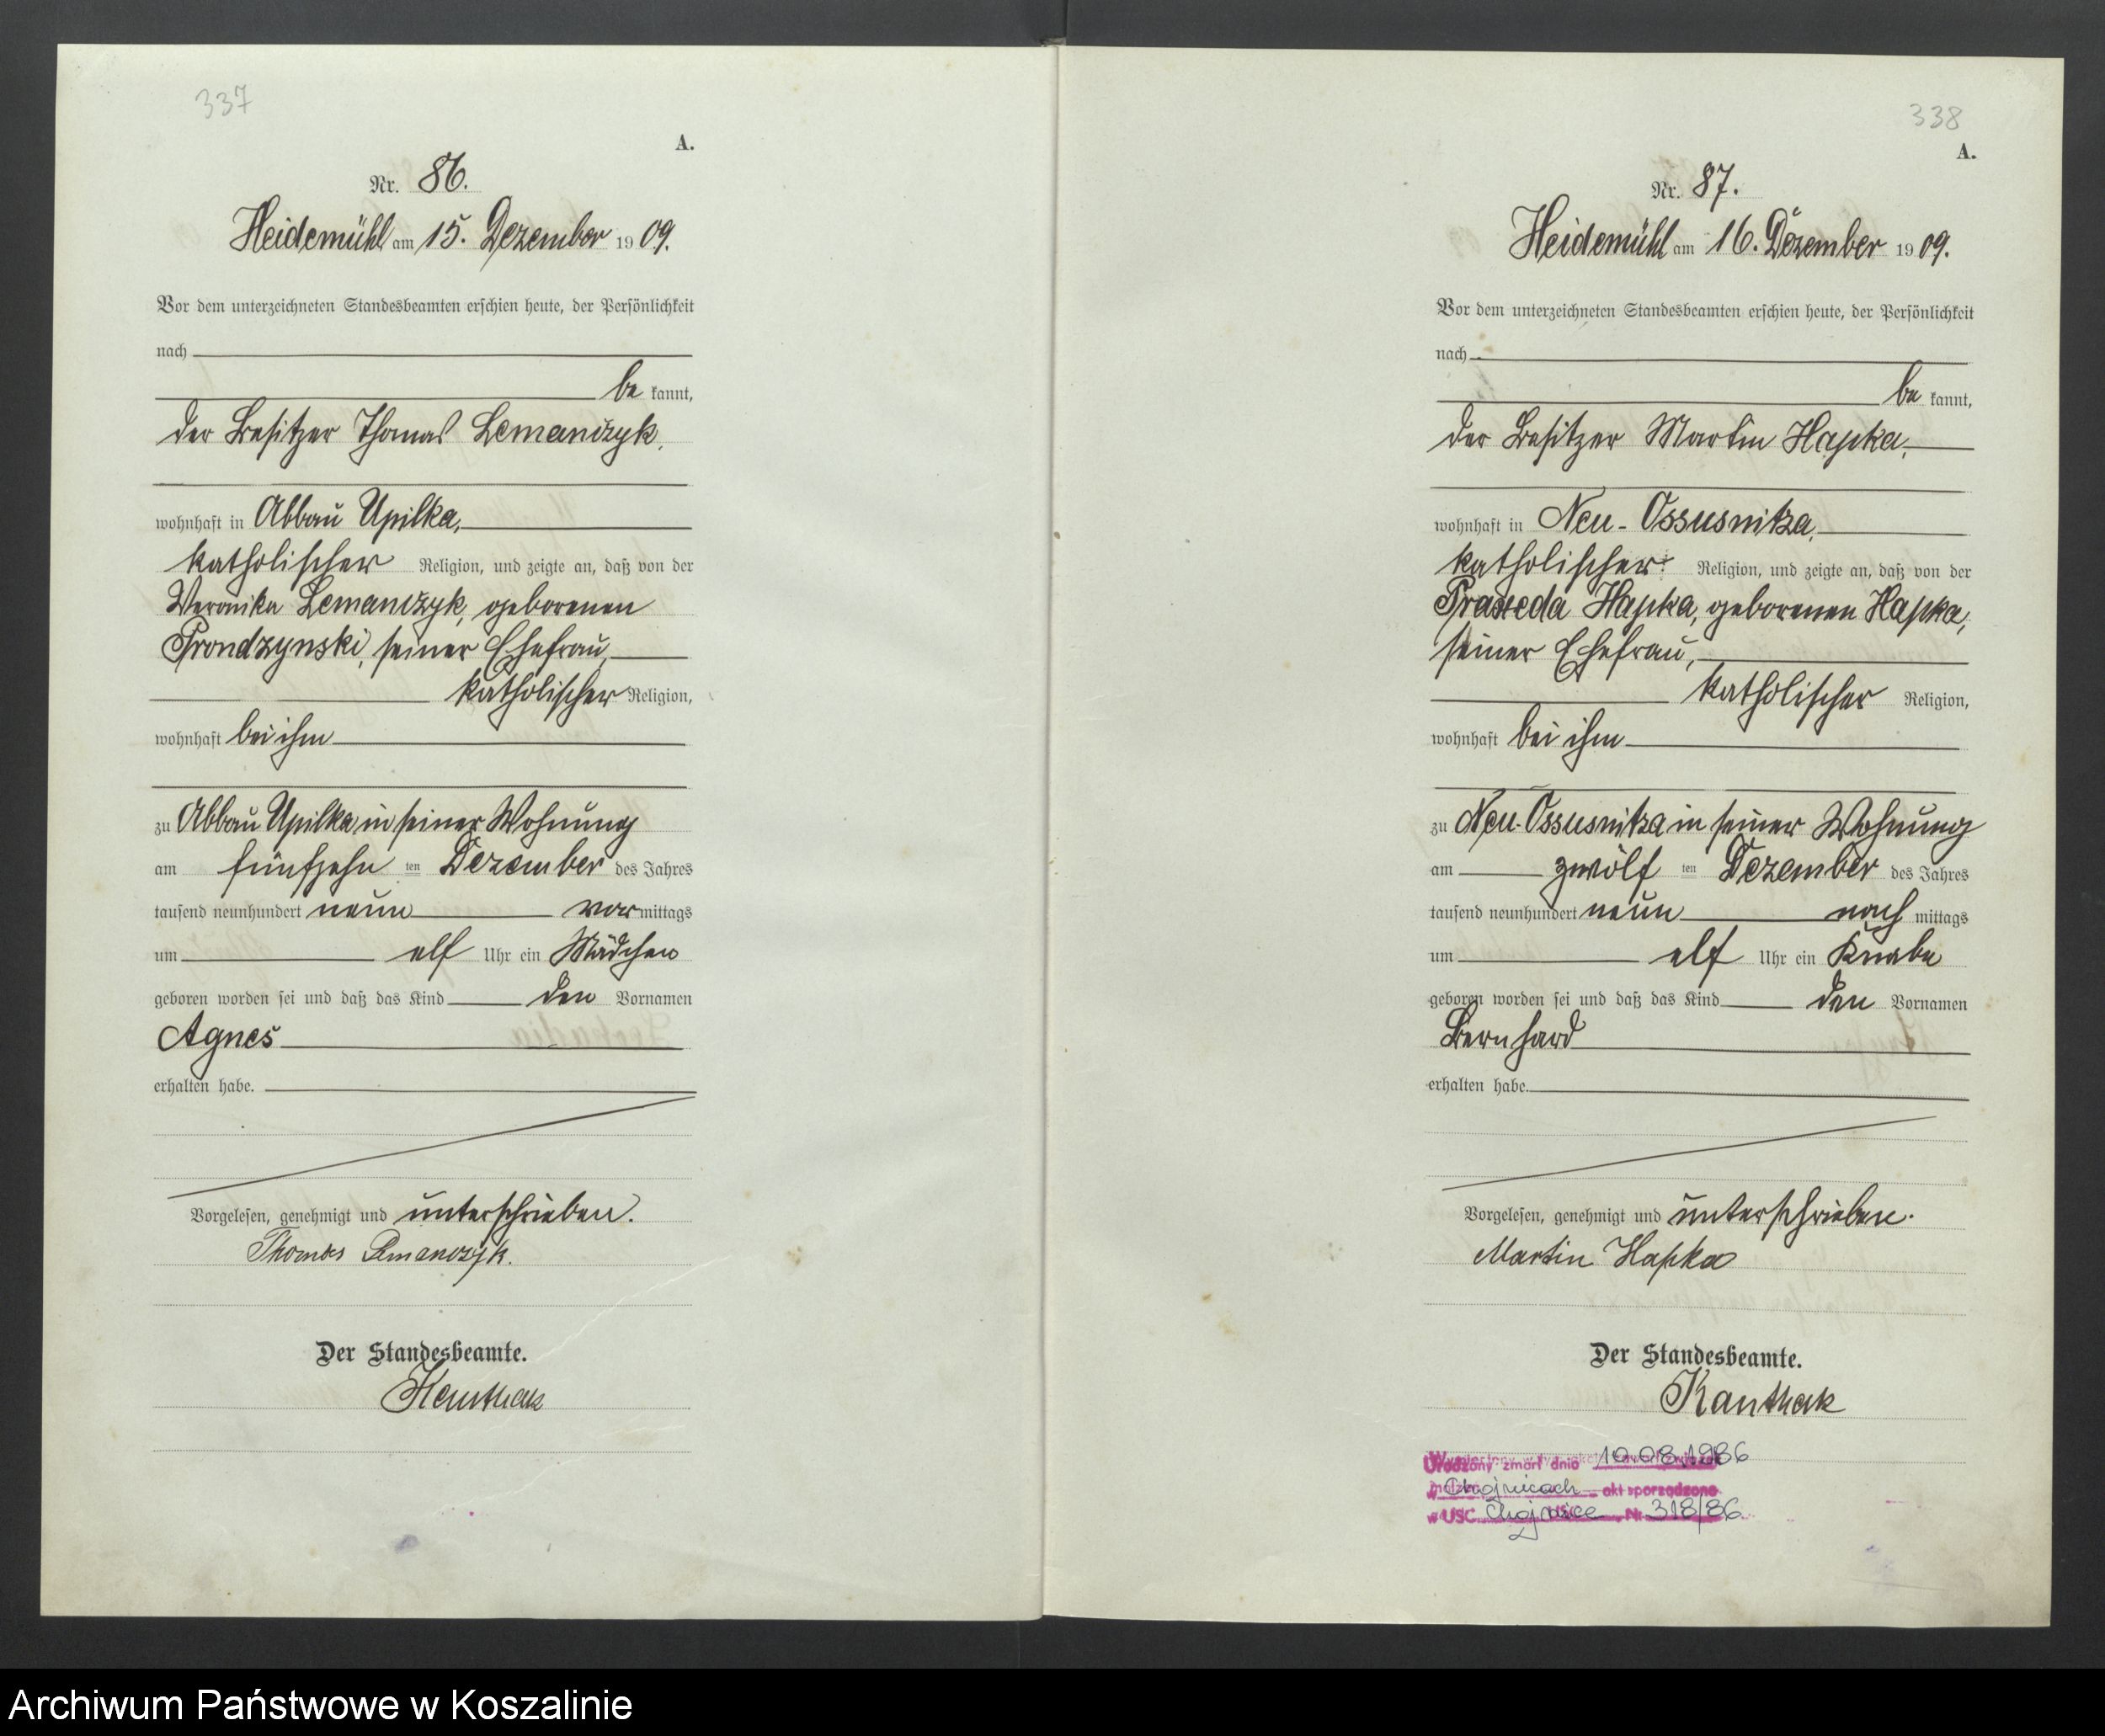 337
A.
Nr. 86.
Heidemühl am 15. Dezember 1909.
Vor dem unterzeichneten Standesbeamten erschien heute, der Persönlichkeit
nach
be kannt,
der Besitzer Thomas Lemanczyk,
wohnhaft in Abbau Upilka,
katholischer Religion, und zeigte an, daß von der
Veronika Lemanczyk, geborenen
Prondzynski, seiner Ehefrau,
katholischer Religion,
wohnhaft bei ihm
zu Abbau Upilka in seiner Wohnung
am fünfzehn ten Dezember des Jahres
tausend neunhundert neun vormittags
um elf Uhr ein Mädchen
geboren worden sei und daß das Kind den Vornamen
Agnes
erhalten habe.
Vorgelesen, genehmigt und unterschrieben.
Thomas Lemanczyk.
Der Standesbeamte.
Kanthak
338
A.
Nr. 87.
Heidemühl am 16. Dezember 1909.
Vor dem unterzeichneten Standesbeamten erschien heute, der Persönlichkeit
nach
be kannt,
der Besitzer Martin Hapka,
wohnhaft in Neu-Ossusnitza,
katholischer Religion, und zeigte an, daß von der
Praxeda Hapka, geborenen Hapka,
seiner Ehefrau,
katholischer Religion,
wohnhaft bei ihm
zu Neu-Ossusnitza in seiner Wohnung
am zwölf ten Dezember des Jahres
tausend neunhundert neun nach mittags
um elf Uhr ein Knabe
geboren worden sei und daß das Kind den Vornamen
Bernhard
erhalten habe.
Vorgelesen, genehmigt und unterschrieben.
Martin Hapka
Der Standesbeamte.
Kanthak
Urodzony zmarł dnia 10.08.1986
w Chojnicach akt sporządzono
w USC Chojnice Nr 318/86
Archiwum Państwowe w Koszalinie